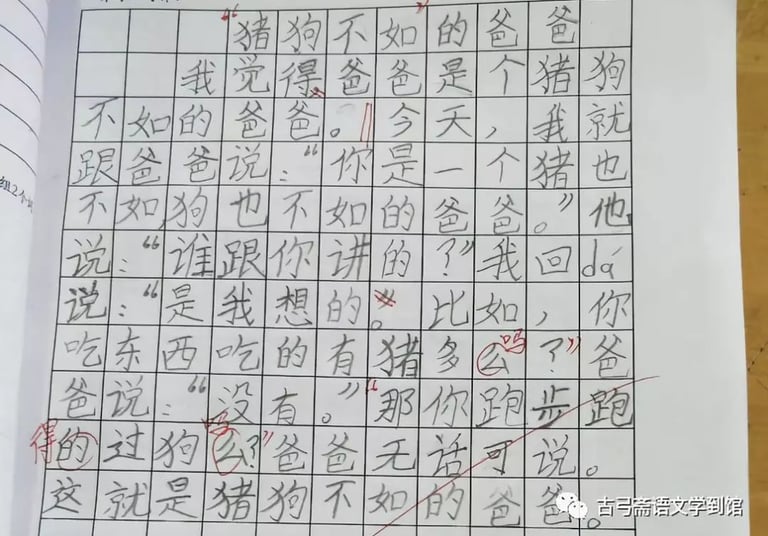 “猪狗不如”的爸爸
我觉得爸爸是个猪狗
不如的爸爸。今天，我就
跟爸爸说：“你是一个猪也
不如，狗也不如的爸爸。”他
说：“谁跟你讲的？”我回dá
说：“是我想的。比如，你
吃东西吃的有猪多么吗？”爸
爸说：“没有。”“那你跑步跑
得的过狗么吗？”爸爸无话可说。
这就是猪狗不如的爸爸。
组2个词
古弓斋语文学到馆